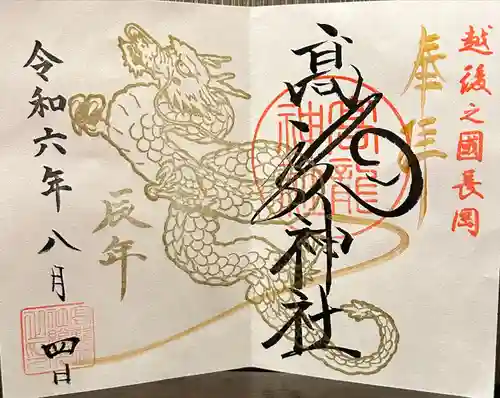 越後之國長岡
奉拝
高龍神社
高龍
神社
辰年
令和六年八月四日